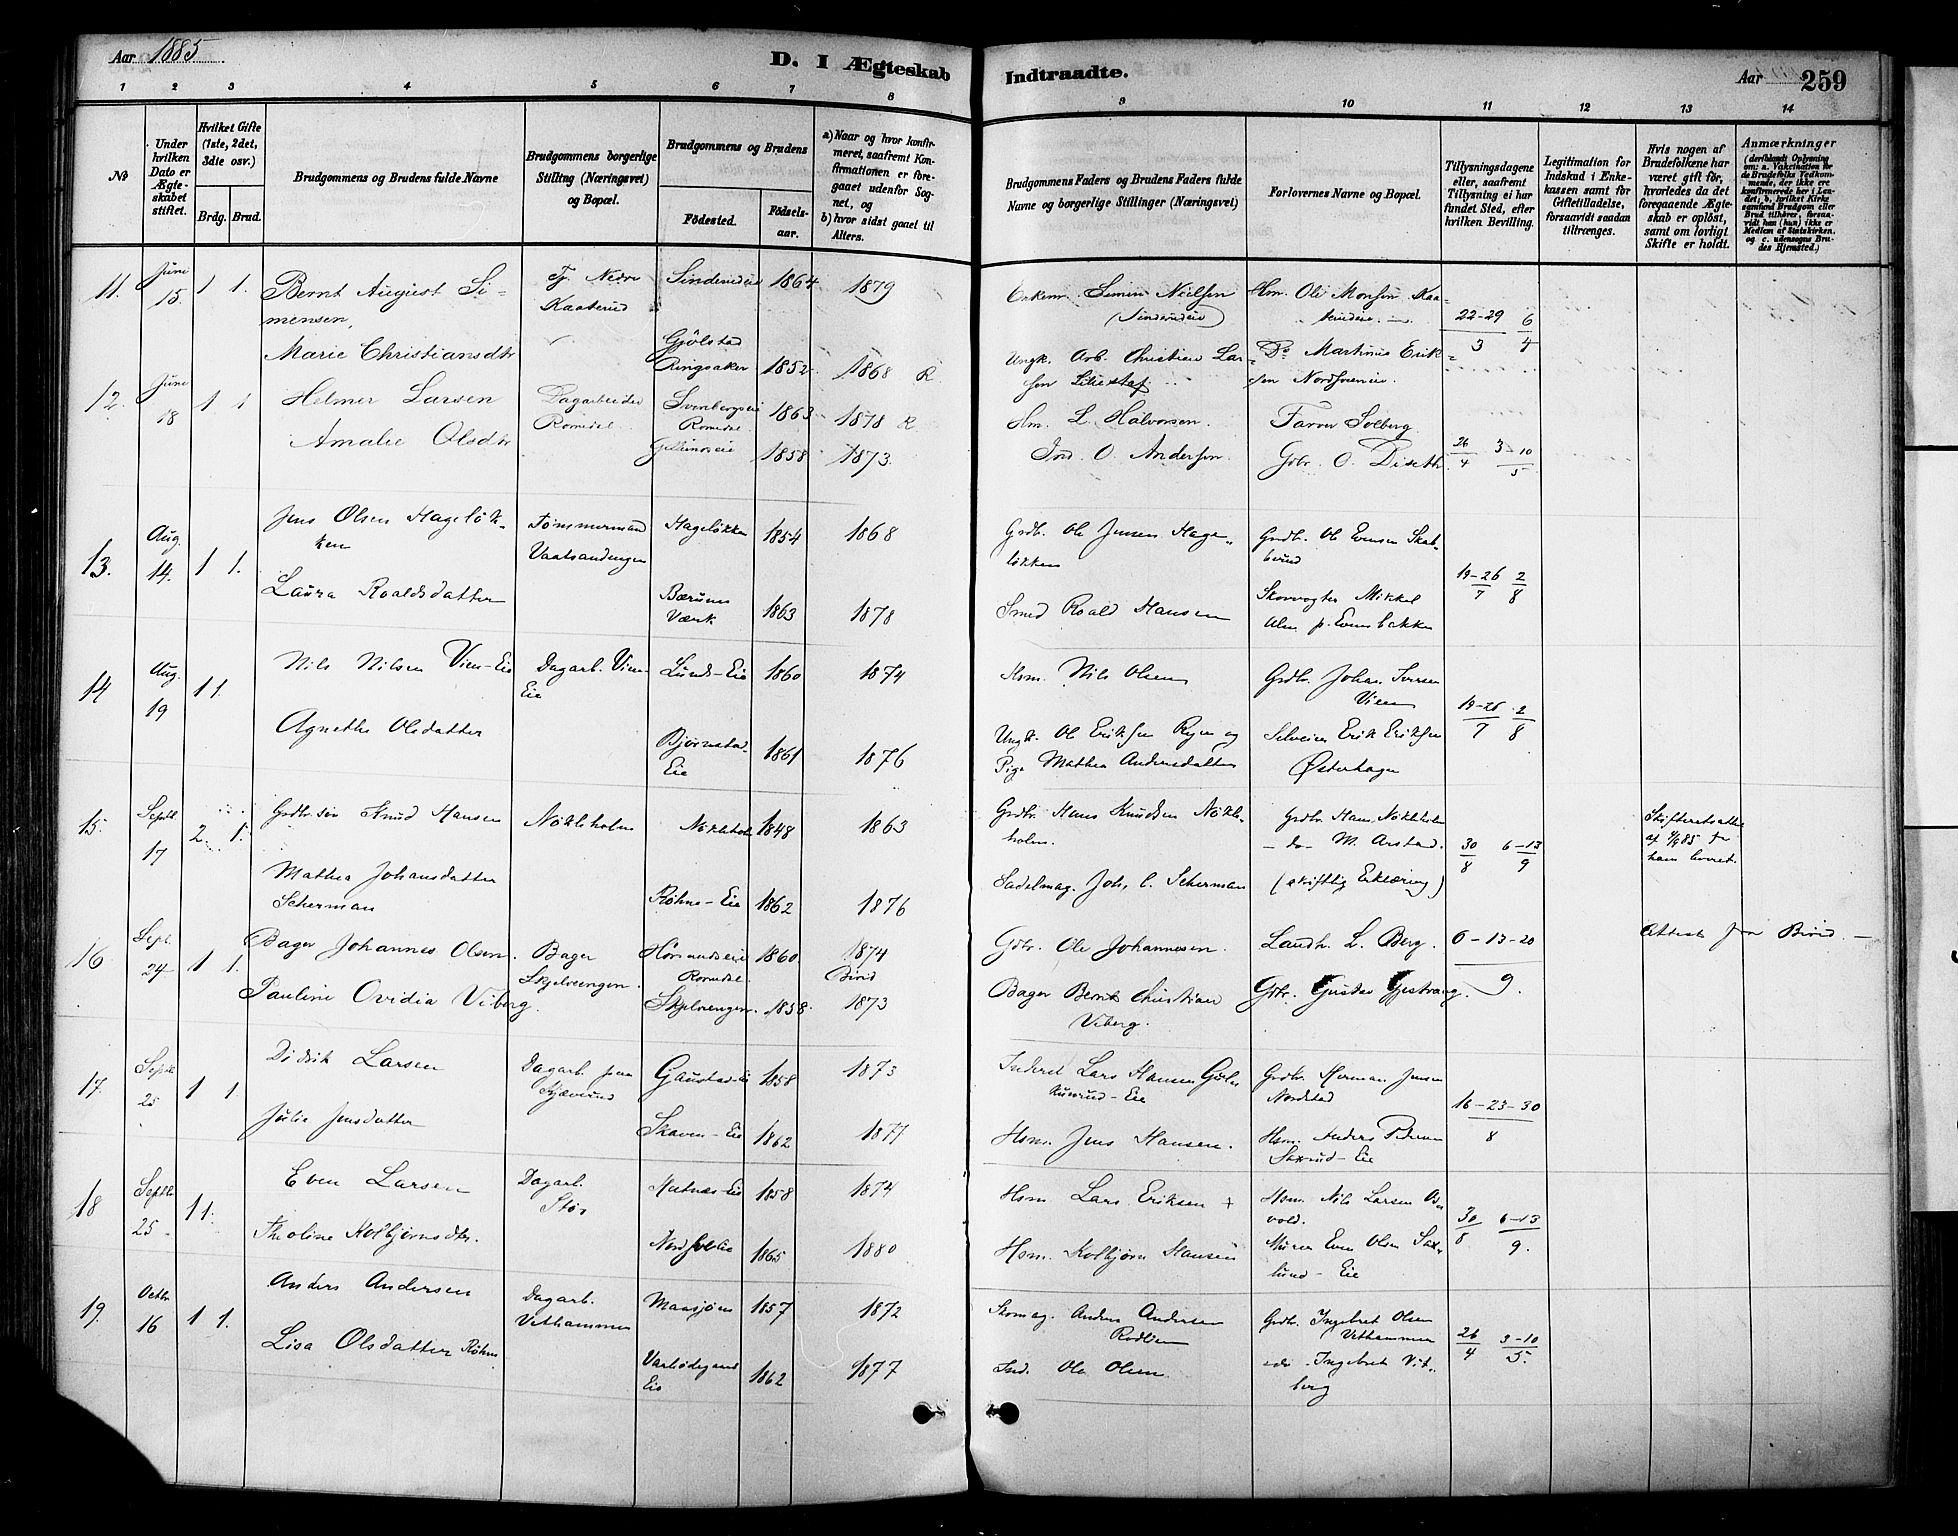 Aar 1885.
D. I Ægteskab
Indtraadte.
Aar
259
1 2 3 4 5 6 7 8 9 10 11 12 13 14
No
Under hvilken Dato er Ægteskabet stiftet.
Hvilket Gifte (1ste, 2det, 3die osv.)
Brdg. Brud.
Brudgommens og Brudens fulde Navne
Brudgommens borgerlige Stilling (Næringsvei) og Bopæl.
Brudgommens og Brudens
Födested.
Födsels-aar.
a) Naar og hvor konfirmeret, saafremt Konfirmationen er foregaaet udenfor Sognet, og
b) hvor sidst gaaet til Alters.
Brudgommens Faders og Brudens Faders fulde Navne og borgerlige Stillinger (Næringsvei)
Forlovernes Navne og Bopæl.
Tillysningsdagene eller, saafremt Tillysning ei har fundet Sted, efter hvilken Bevilling.
Legitimation for Indskud i Enkekassen samt for Giftetilladelse, forsaavidt saadan tiltrænges.
Hvis nogen af Brudefolkene har været gift før, hvorledes da det foregaaende Ægteskab er opløst, samt om lovligt Skifte er holdt.
Anmærkninger
11. Juni 15. 1 1. Bernt August Simensen, Tj. Nedre Kaaterud 1864 1879
Enkem. Simen Nielsen Hm. Ole Monsen 22-29/3 6/4
Marie Christiansdtr Gjølstad Ringsaker 1852 1868 R.
Ungk. Arb. Christian Larsen Do Martinus Eriksen
12. Juni 18 1 1 Helmer Larsen Dagarbeider Romedal. Romedal. 1863 1878 R
Hm. L. Halvorsen. Farver Solberg.
Amalie Olsdtr 1858 1873.
Ind. O. Andersen Gdbr. O. Diseth. 26/4 3-10/5
13. Aug. 14. 1 1. Jens Olsen Hageløkken Tømmermand Hageløkken 1854 1868
Grdb. Ole Jensen Hageløkken Grdb. Ole Evensen 19-26/7 2/8
Laura Roaldsdatter Bærums Værk 1863 1878
Smed Roald Hansen Skovvogter Mikkel
14 Aug. 19 1 1. Nils Nilsen Vien-Eie Dagarb. Vien-Eie Lunds-Eie 1860 1874
Hsm. Nils Olsen Grdbr. Johan Iversen Vien 19-26/7 2/8
Agnethe Olsdatter Bjørnstad-Eie 1861 1876
Ungk. Ole Eriksen Ryen og Pige Mathea Andersdatter Selveier Erik Eriksen Østerhagen
15. Septbr 17 2. 1. Grdbr. søn Knud Hansen Nökleholm Nökleholm 1848 1863
Grdbr. Hans Knudsen Nökleholm. Grdbr Hans Nökleholm - do - M. Arstad. 30/8 6-13/9
Mathea Johansdatter Scherman Röhne-Eie 1862 1876
Sadelmag. Joh. C. Scherman (skriftlig Erklæring)
16 Sept. 24 1 1. Bager Johannes Olsen. Bager Skjelvengen. Romedal. 1860 1874 Birid
Gdbr. Ole Johannesen. Landh. L. Berg. 6-13-20/9. Attest fra Birid -
Pauline Ovidia Viberg. Skjelvengen. 1858. 1873
Bager Bernt Christian Viberg. Gdbr. Gustav Gjestvang.
17. Septbr 25 1 1. Didrik Larsen Dagarb. paa Gaustad-Eie 1858 1873
Inderst Lars Hansen Grdbr. Herman Jensen Nordstad 16-23-30/8
Julie Jensdatter Skaven-Eie 1862 1877
Hsm. Jens Hansen. Hsm. Anders Pedersen Saxrud-Eie
18 Septbr 25 1 1. Even Larsen Dagarb. Stör 1858 1874
Hsm. Lars Eriksen + Hsm. Nils Larsen 30/8 6-13/9.
Theoline Kolbjørnsdtr. 1865 1880
Hsm. Kolbjørn Hansen Murer Even Olsen Saxlund-Eie
19. Octbr 16 1 1. Anders Andersen Dagarb. Vethammer Maasjøen 1857 1872
Skomag. Anders Andersen Rodlien Grdbr. Ingebret Olsen Vethammer 26/4 3-10/5.
Lisa Olsdatter Röhne 1862 1877
Ind. Ole Olsen. do. Ingebret